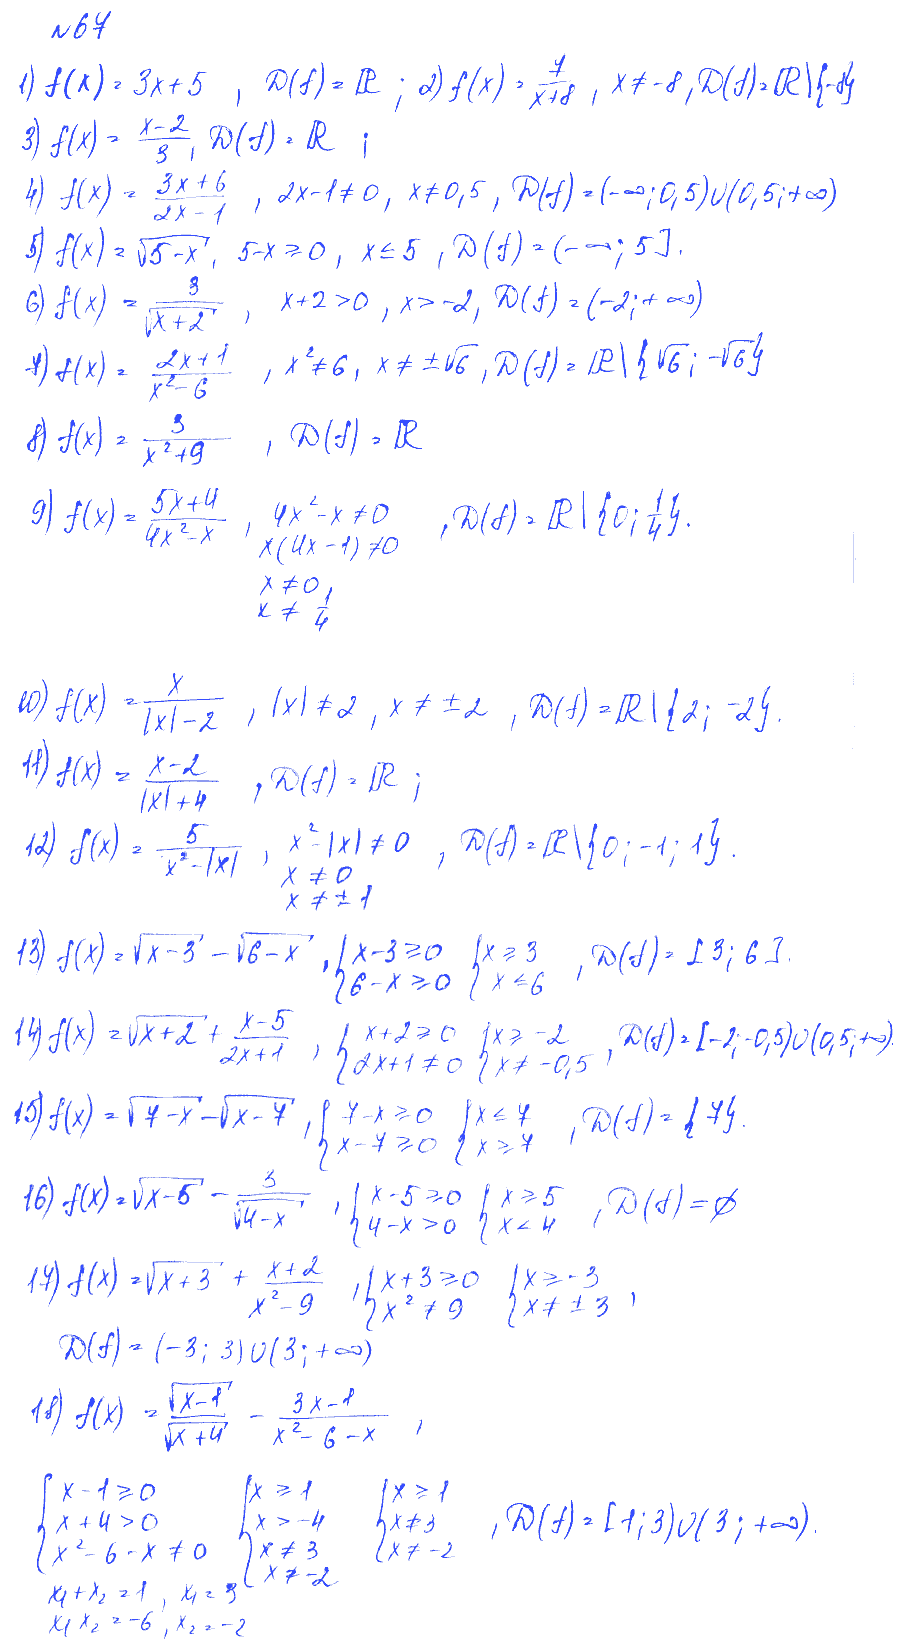 №67
1) f(x) = 3x+5 , D(f) = ℝ ; 2) f(x) = 7/(x+8) , x ≠ -8, D(f) = ℝ\{-8}
3) f(x) = (x-2)/3, D(f) = ℝ ;
4) f(x) = (3x+6)/(2x-1) , 2x-1≠0 , x≠0,5 , D(f) = (-∞; 0,5)∪(0,5; +∞)
5) f(x) = √(5-x), 5-x ≥ 0 , x ≤ 5 , D(f) = (-∞; 5].
6) f(x) = 3/√(x+2) , x+2 > 0 , x > -2, D(f) = (-2; +∞)
7) f(x) = (2x+1)/(x²-6) , x² ≠ 6, x ≠ ±√6 , D(f) = ℝ\{√6; -√6}
8) f(x) = 3/(x²+9) , D(f) = ℝ
9) f(x) = (5x+4)/(4x²-x) , 4x²-x ≠ 0 , D(f) = ℝ\{0; 1/4}.
x(4x-1) ≠ 0
x ≠ 0,
x ≠ 1/4
10) f(x) = x/(|x|-2) , |x| ≠ 2 , x ≠ ±2 , D(f) = ℝ\{2; -2}.
11) f(x) = (x-2)/(|x|+4) , D(f) = ℝ ;
12) f(x) = 5/(x²-|x|) , x²-|x| ≠ 0 , D(f) = ℝ\{0; -1; 1}.
x ≠ 0
x ≠ ±1
13) f(x) = √(x-3) - √(6-x) , { x-3 ≥ 0 { x ≥ 3 , D(f) = [3; 6].
6-x ≥ 0 x ≤ 6
14) f(x) = √(x+2) + (x-5)/(2x+1) , { x+2 ≥ 0 { x ≥ -2 , D(f) = [-2; -0,5)∪(0,5; +∞).
2x+1 ≠ 0 x ≠ -0,5
15) f(x) = √(7-x) - √(x-7) , { 7-x ≥ 0 { x ≤ 7 , D(f) = {7}.
x-7 ≥ 0 x ≥ 7
16) f(x) = √(x-5) - 3/√(4-x) , { x-5 ≥ 0 { x ≥ 5 , D(f) = ∅
4-x > 0 x < 4
17) f(x) = √(x+3) + (x+2)/(x²-9) , { x+3 ≥ 0 { x ≥ -3 ,
x² ≠ 9 x ≠ ±3
D(f) = (-3; 3)∪(3; +∞)
18) f(x) = √(x-1)/√(x+4) - (3x-1)/(x²-6-x) ,
{ x-1 ≥ 0 { x ≥ 1 { x ≥ 1
x+4 > 0 x > -4 x ≠ 3 , D(f) = [1; 3)∪(3; +∞).
x²-6-x ≠ 0 x ≠ 3 x ≠ -2
x ≠ -2
x₁+x₂ = 1 , x₁ = 3
x₁x₂ = -6 , x₂ = -2